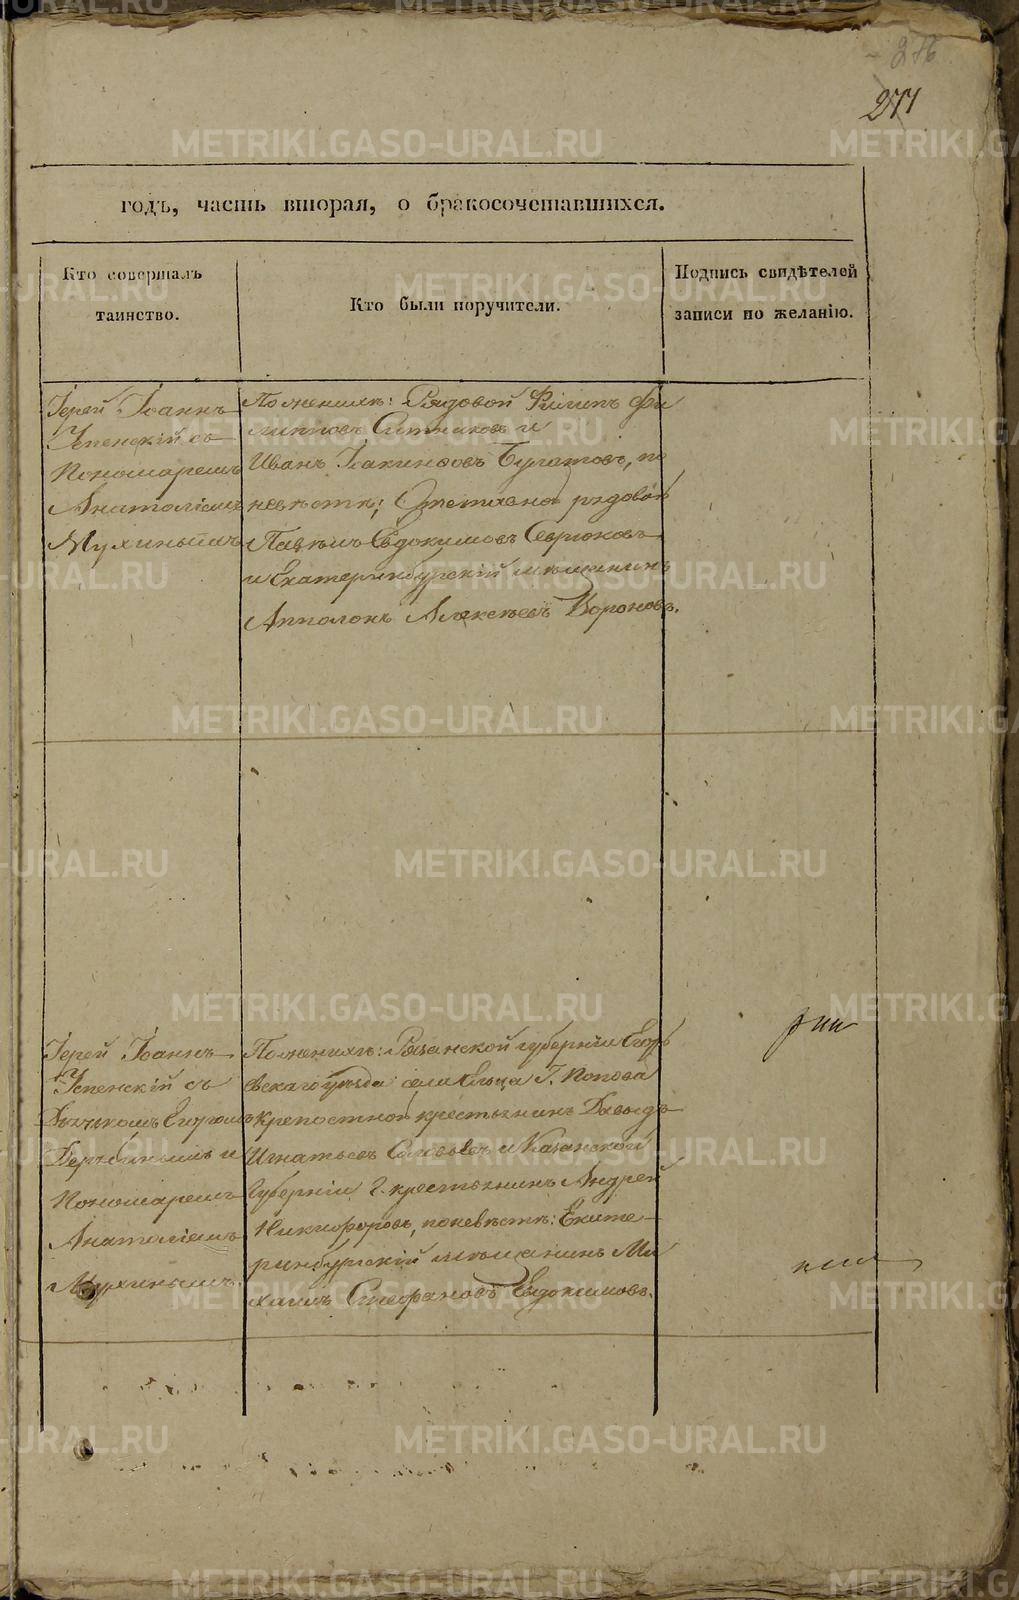 276
277
годъ, часть вторая, о бракосочетавшихся.
Кто совершалъ
таинство.
Кто были поручители.
Подпись свидѣтелей
записи по желанію.
Іерей Іоаннъ
Успенскій съ
Пономаремъ
Анатоліемъ
Мухинымъ
По женихѣ: Рядовой Филипъ Фи
липповъ Ситниковъ и
Иванъ Іакинѳовъ Булатовъ, по
невѣстѣ; Отставной рядовой
Павелъ Евдокимовъ Севрюковъ
и Екатеринбургскій мѣщанинъ
Апполонъ Алексѣевъ Вороновъ.
Іерей Іоаннъ
Успенскій съ
Дьячкомъ Егоромъ
Дерябинымъ и
Пономаремъ
Анатоліемъ
Мухинымъ.
По женихѣ: Рязанской губерніи Егорь
евскаго уѣзда села Ельца Г. Попова
крепостной крестьянинъ Давыдъ
Игнатьевъ и Казанской
Губерніи Г. крестьянинъ Андрей
Никифоровъ, по невѣстѣ: Екате
ринбургскій мѣщанинъ Ми
хаилъ Стефановъ Евдокимовъ.
METRIKI.GASO-URAL.RU